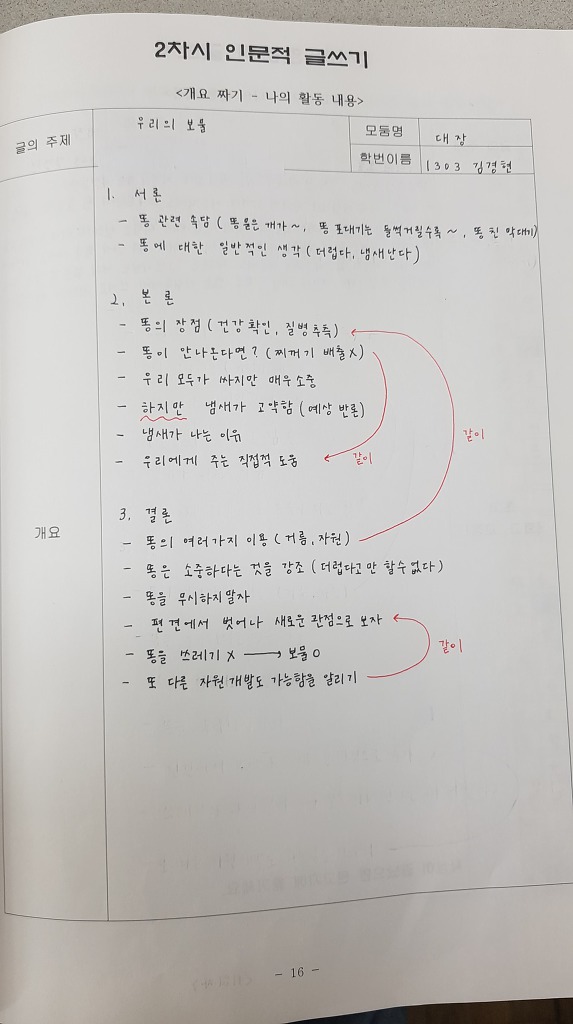 2차시 인문적 글쓰기
<개요 짜기 - 나의 활동 내용>
글의 주제
우리의 보물
모둠명
대장
학번이름
1303 김경현
개요
1. 서론
- 똥 관련 속담 (똥 묻은 개가~, 똥 포대기는 들썩거릴수록~, 똥 친 막대기)
- 똥에 대한 일반적인 생각 (더럽다, 냄새난다)
2. 본론
- 똥의 장점 (건강 확인, 질병 추측)
- 똥이 안나온다면? (찌꺼기 배출X)
- 우리 모두가 싸지만 매우 소중
- 하지만 냄새가 고약함 (예상 반론)
- 냄새가 나는 이유
- 우리에게 주는 직접적 도움
같이
같이
3. 결론
- 똥의 여러가지 이용 (거름, 자원)
- 똥은 소중하다는 것을 강조 (더럽다고만 할수없다)
- 똥을 무시하지말자
- 편견에서 벗어나 새로운 관점으로 보자
- 똥을 쓰레기 X → 보물 O
같이
- 또 다른 자원 개발도 가능함을 알리기
- 16 -